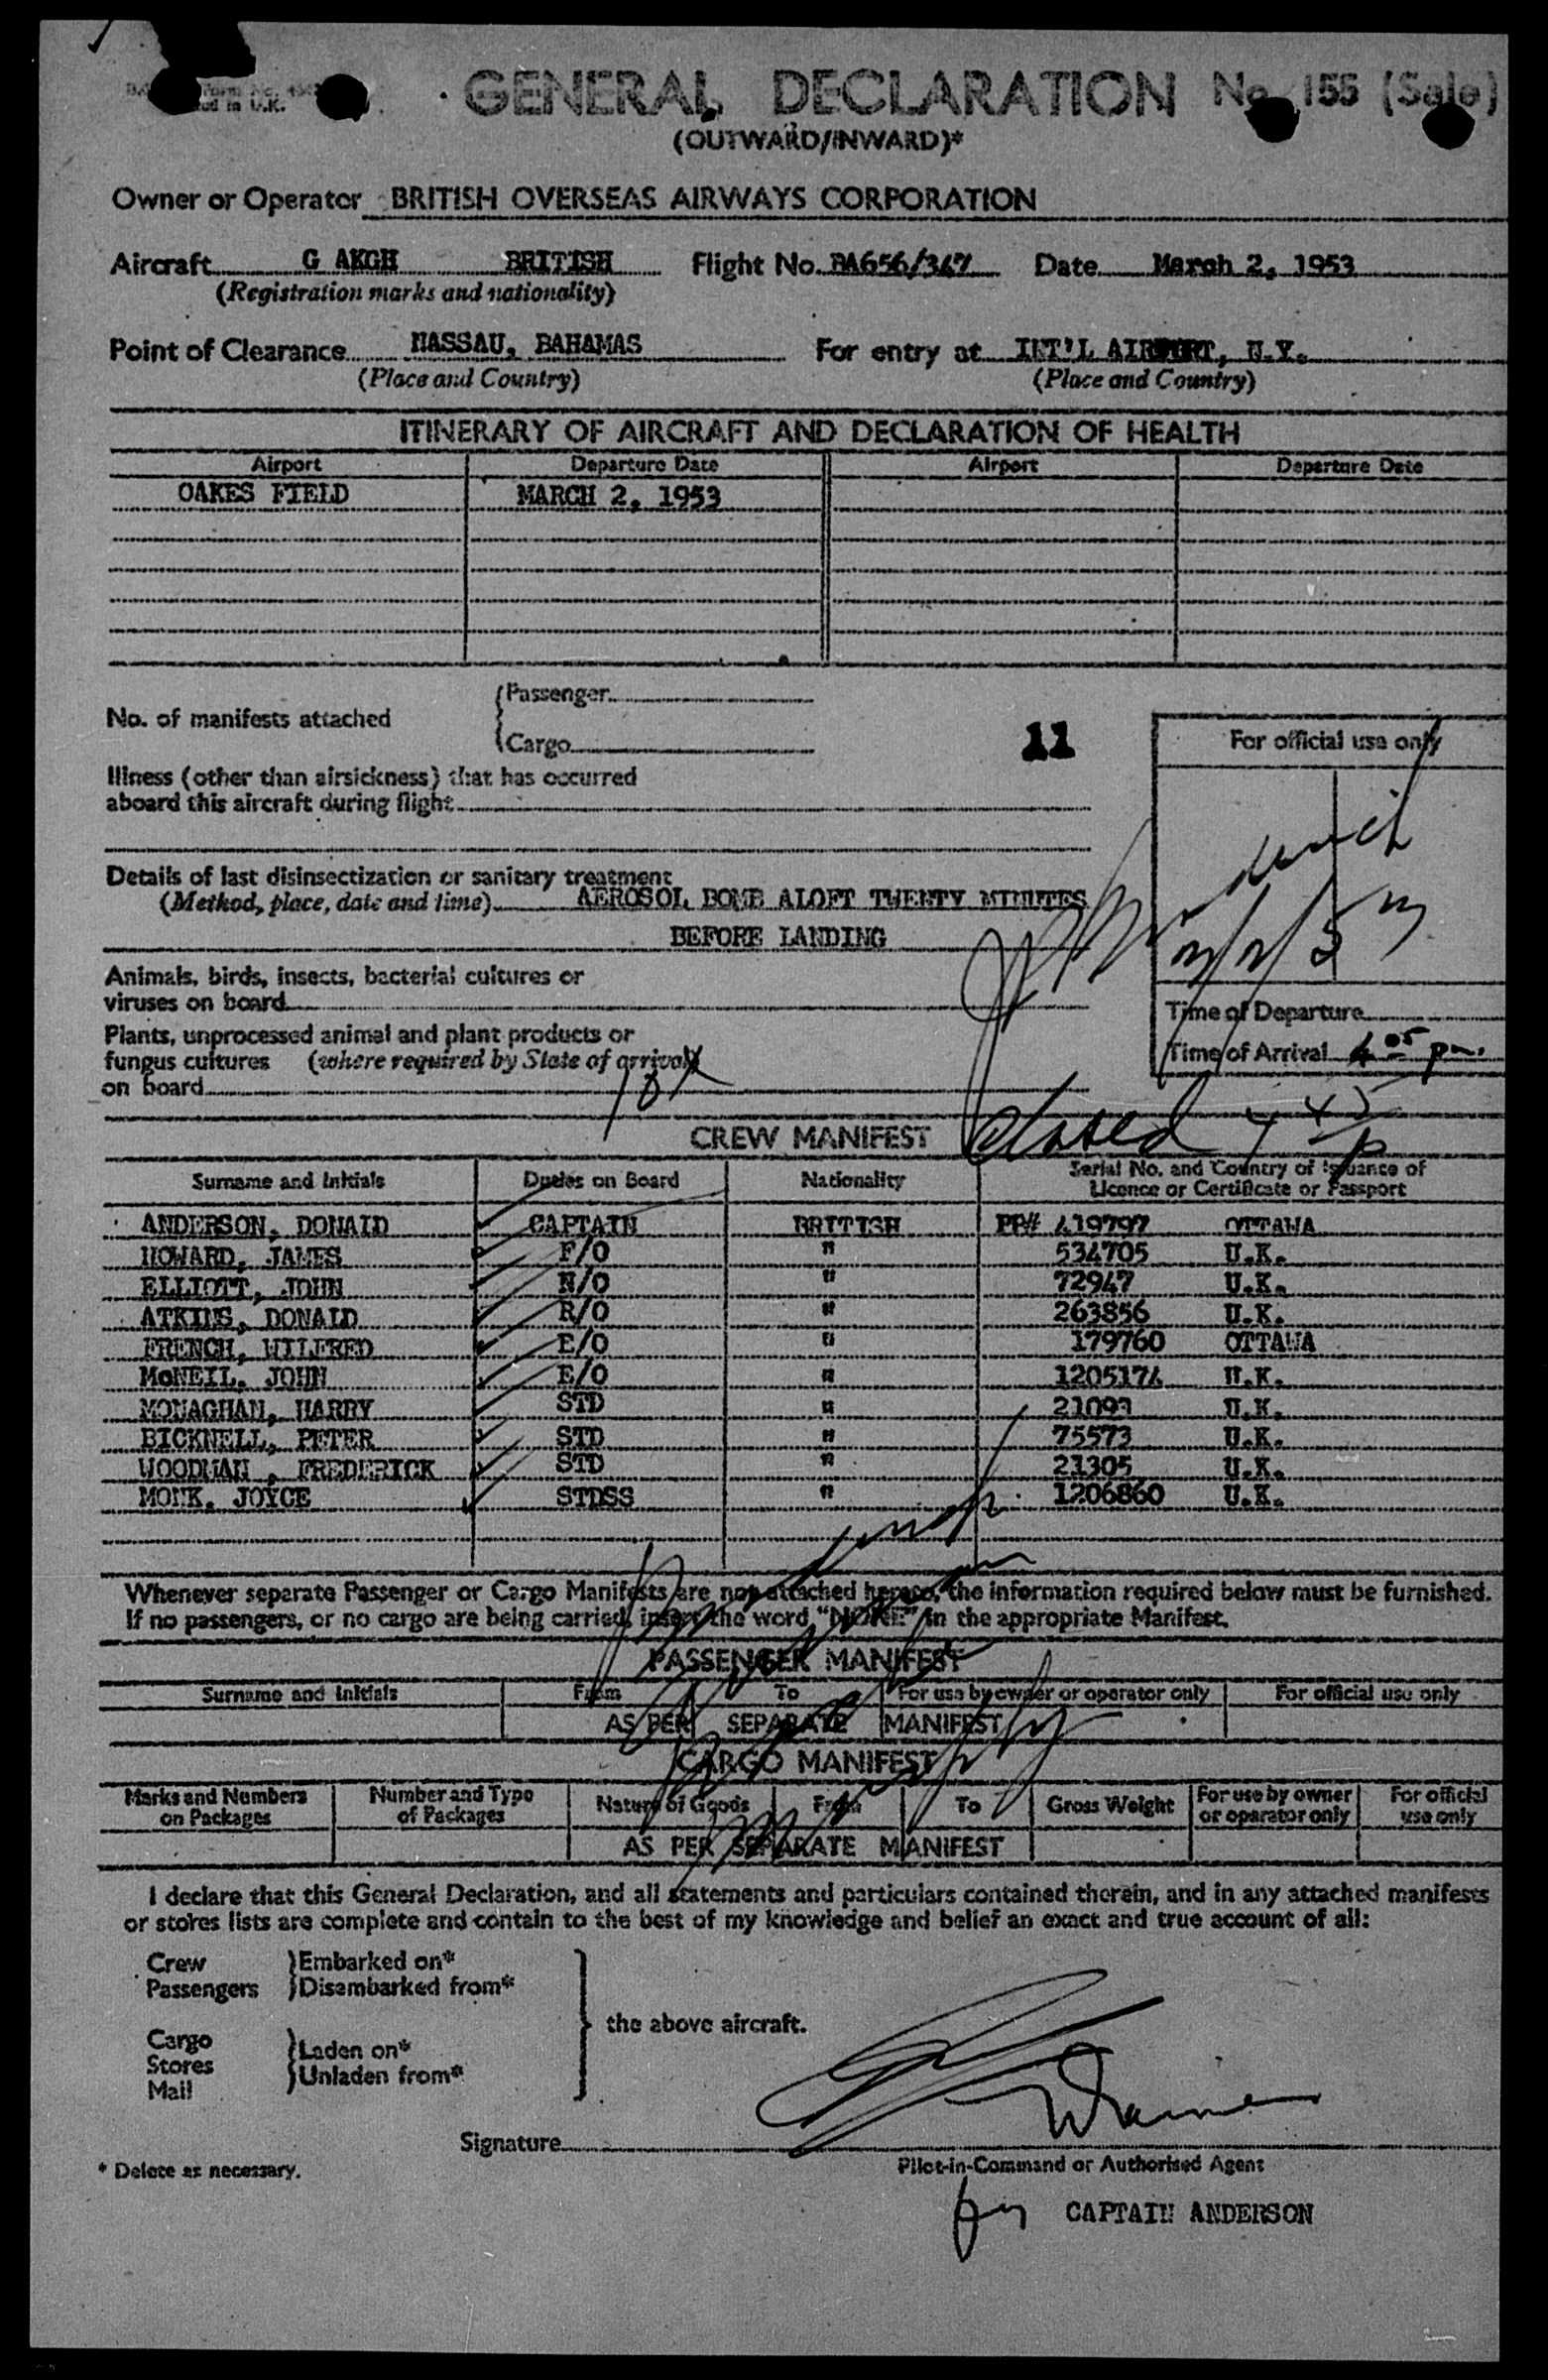 GENERAL DECLARATION No. 155 (Sale)
in U.K.
(OUTWARD/INWARD)*
Owner or Operator BRITISH OVERSEAS AIRWAYS CORPORATION
Aircraft G AKGH BRITISH Flight No. BA656/347 Date March 2, 1953
(Registration marks and nationality)
Point of Clearance NASSAU, BAHAMAS For entry at INT'L AIRPORT, N.Y.
(Place and Country) (Place and Country)
ITINERARY OF AIRCRAFT AND DECLARATION OF HEALTH
Airport Departure Date Airport Departure Date
OAKES FIELD MARCH 2, 1953
No. of manifests attached
Passenger
Cargo
11
For official use only
Illness (other than airsickness) that has occurred
aboard this aircraft during flight
Details of last disinsectization or sanitary treatment
(Method, place, date and time) AEROSOL BOMB ALOFT TWENTY MINUTES
BEFORE LANDING
Animals, birds, insects, bacterial cultures or
viruses on board
Time of Departure
Plants, unprocessed animal and plant products or
fungus cultures (where required by State of arrival)
on board
Time of Arrival 4 05 pm.
Closed 4 45 p
CREW MANIFEST
Surname and Initials Duties on Board Nationality Serial No. and Country of Issuance of
Licence or Certificate or Passport
ANDERSON, DONALD CAPTAIN BRITISH PP# 419797 OTTAWA
HOWARD, JAMES F/O " 534705 U.K.
ELLIOTT, JOHN N/O " 72947 U.K.
ATKINS, DONALD R/O " 263856 U.K.
FRENCH, WILFRED E/O " 179760 OTTAWA
McNEIL, JOHN E/O " 1205174 U.K.
MONAGHAN, HARRY STD " 21093 U.K.
BICKNELL, PETER STD " 75573 U.K.
WOODMAN , FREDERICK STD " 21305 U.K.
MONK, JOYCE STDSS " 1206860 U.K.
Whenever separate Passenger or Cargo Manifests are not attached hereto, the information required below must be furnished.
If no passengers, or no cargo are being carried, insert the word "NONE" in the appropriate Manifest.
PASSENGER MANIFEST
Surname and Initials From To For use by owner or operator only For official use only
AS PER SEPARATE MANIFEST
CARGO MANIFEST
Marks and Numbers on Packages Number and Type of Packages Nature of Goods From To Gross Weight For use by owner or operator only For official use only
AS PER SEPARATE MANIFEST
I declare that this General Declaration, and all statements and particulars contained therein, and in any attached manifests
or stores lists are complete and contain to the best of my knowledge and belief an exact and true account of all:
Crew Embarked on*
Passengers Disembarked from*
the above aircraft.
Cargo
Stores
Mail
Laden on*
Unladen from*
Signature
* Delete as necessary.
Pilot-in-Command or Authorised Agent
for CAPTAIN ANDERSON